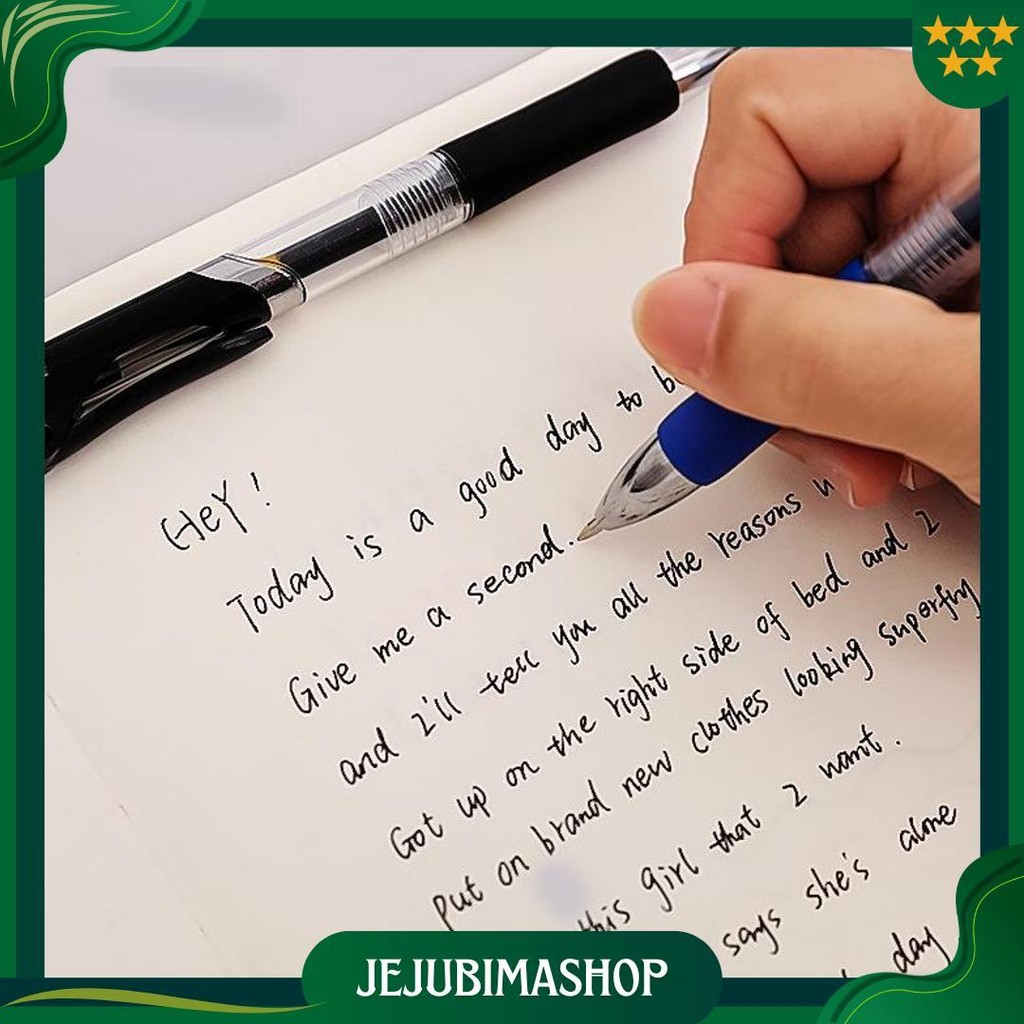 HEY!
Today is a good day to
Give me a second.
and I'll tell you all the reasons
Got up on the right side of bed and I
Put on brand new clothes looking superfly
this girl that I want.
says she's alone
day
JEJUBIMASHOP